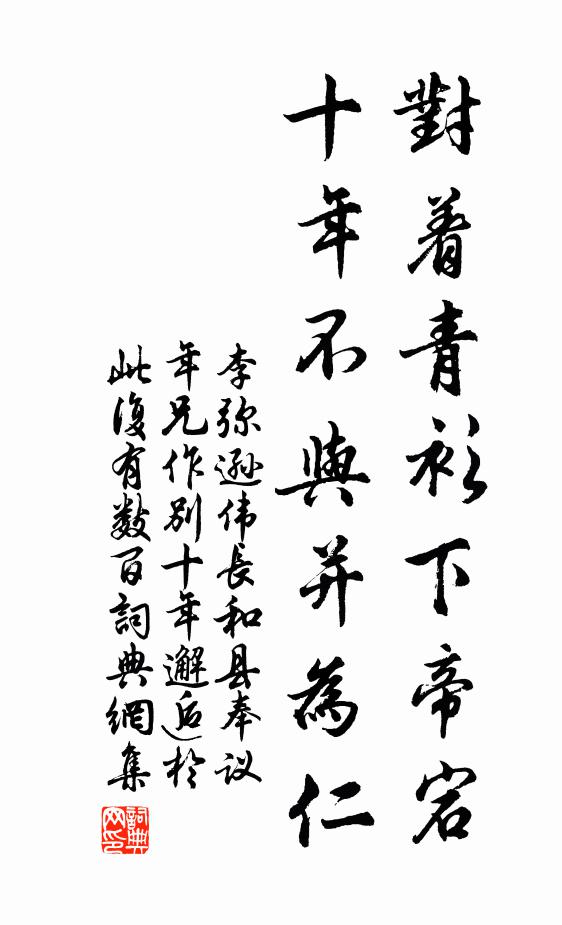 對着青衫下帝宕
十年不與并為仁
李弥逊伟長和县奉议
年兄作别十年邂逅於
此復有数百詞典網集
詞典网印